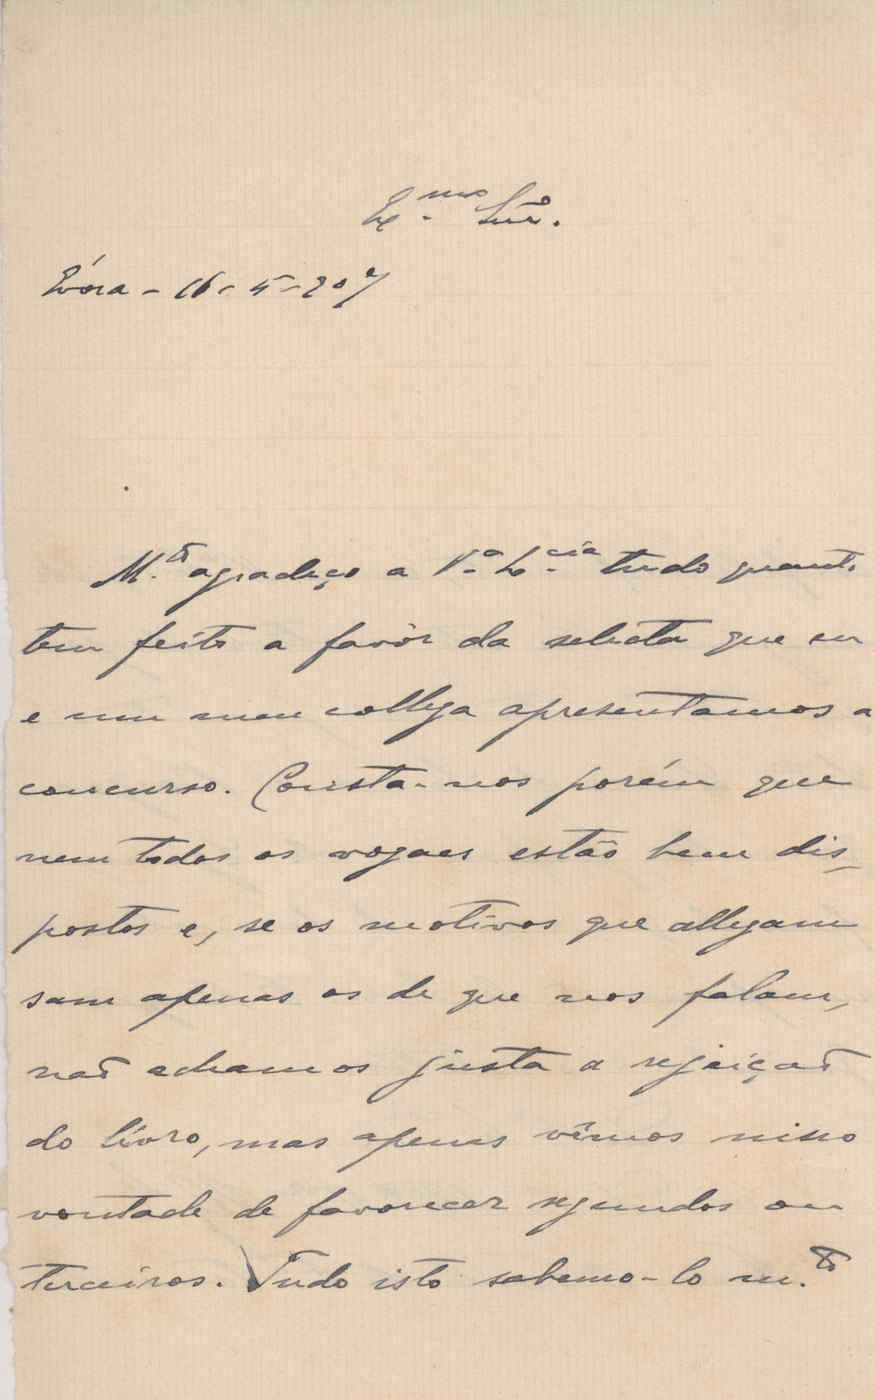 Ex.mo Snr.
Évora - 16 - 5 - 907
M.to agradeço a V.a Ex.cia tudo quanto
tem feito a favôr da selecta que eu
e um meu collega apresentamos a
concurso. Consta-nos porém que
nem todos os vogaes estão bem dis-
postos e, se os motivos que allegam
sam apenas os de que nos falam,
não achamos justa a rejeição
do livro, mas apenas vêmos nisso
vontade de favorecer segundos ou
terceiros. Tudo isto sabemo-lo m.to